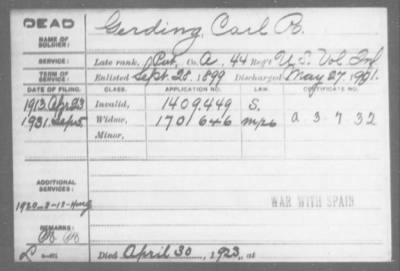 DEAD
NAME OF SOLDIER: Gerding, Carl R.
SERVICE: Late rank, Pvt, Co. A, 44 Reg't U.S. Vol Inf
TERM OF SERVICE: Enlisted Sept. 28, 1899 Discharged May 27, 1901.
DATE OF FILING. CLASS. APPLICATION NO. LAW. CERTIFICATE NO.
1913 Apr 23 Invalid, 1409.449 S.
1931 Sep 5 Widow, 1701646 a 3 7 32
Minor,
ADDITIONAL SERVICES:
WAR WITH SPAIN
REMARKS:
Died April 30, 1923, at